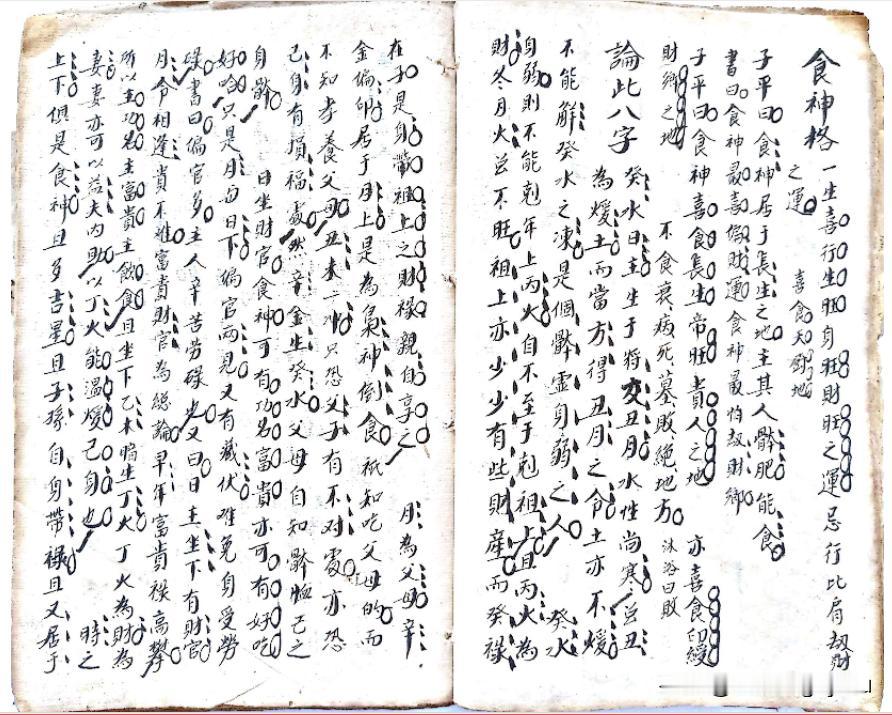 食神格 一生喜行生旺身旺財旺之運忌行比肩刼財
之運 喜食天厨地
子平曰食神居于長生之地主其人骵肥能食
書曰食神最喜偏財運食神最怕刼財鄉
子平曰食神喜食長生帝旺貴人之地 亦喜食印綬
財鄉之地 不食衰病死墓敗絕地方 沐浴曰敗
論此八字 癸水日主生于將交丑月水性尚寒总丑
為煖土而當方得丑月之令土亦不煖
不能觧癸水之凍是個骵虛身弱之人 癸水
身弱則不能剋年上丙火自不至于剋祖上且丙火為
財冬月火总不旺祖上亦少少有些財產而癸禄
在子是身帶祖上之財禄親自享之 月為父母辛
金偏印居于月上是為梟神倒食祇知吃父母的而
不知孝養父母丑未一冲只恐父子有不对處亦恐
己身有損福處然辛金生癸水父母自知骵恤己之
身骵 日坐財官食神可有功名富貴亦可有好吃
好唅只是月与日下偏官兩見又有藏伏难免身受勞
碌書曰偏官多主人辛苦勞碌也又曰日主坐下有財官
月令相逢貴不难富貴財官為総論早年富貴禄高攀
所以主功名主富貴主飲食且坐下乙木暗生丁火丁火為財為
妻妻亦可以益夫内助以丁火能温煖己身也 時之
上下俱是食神且多吉星且子孫自身帶禄且又居于